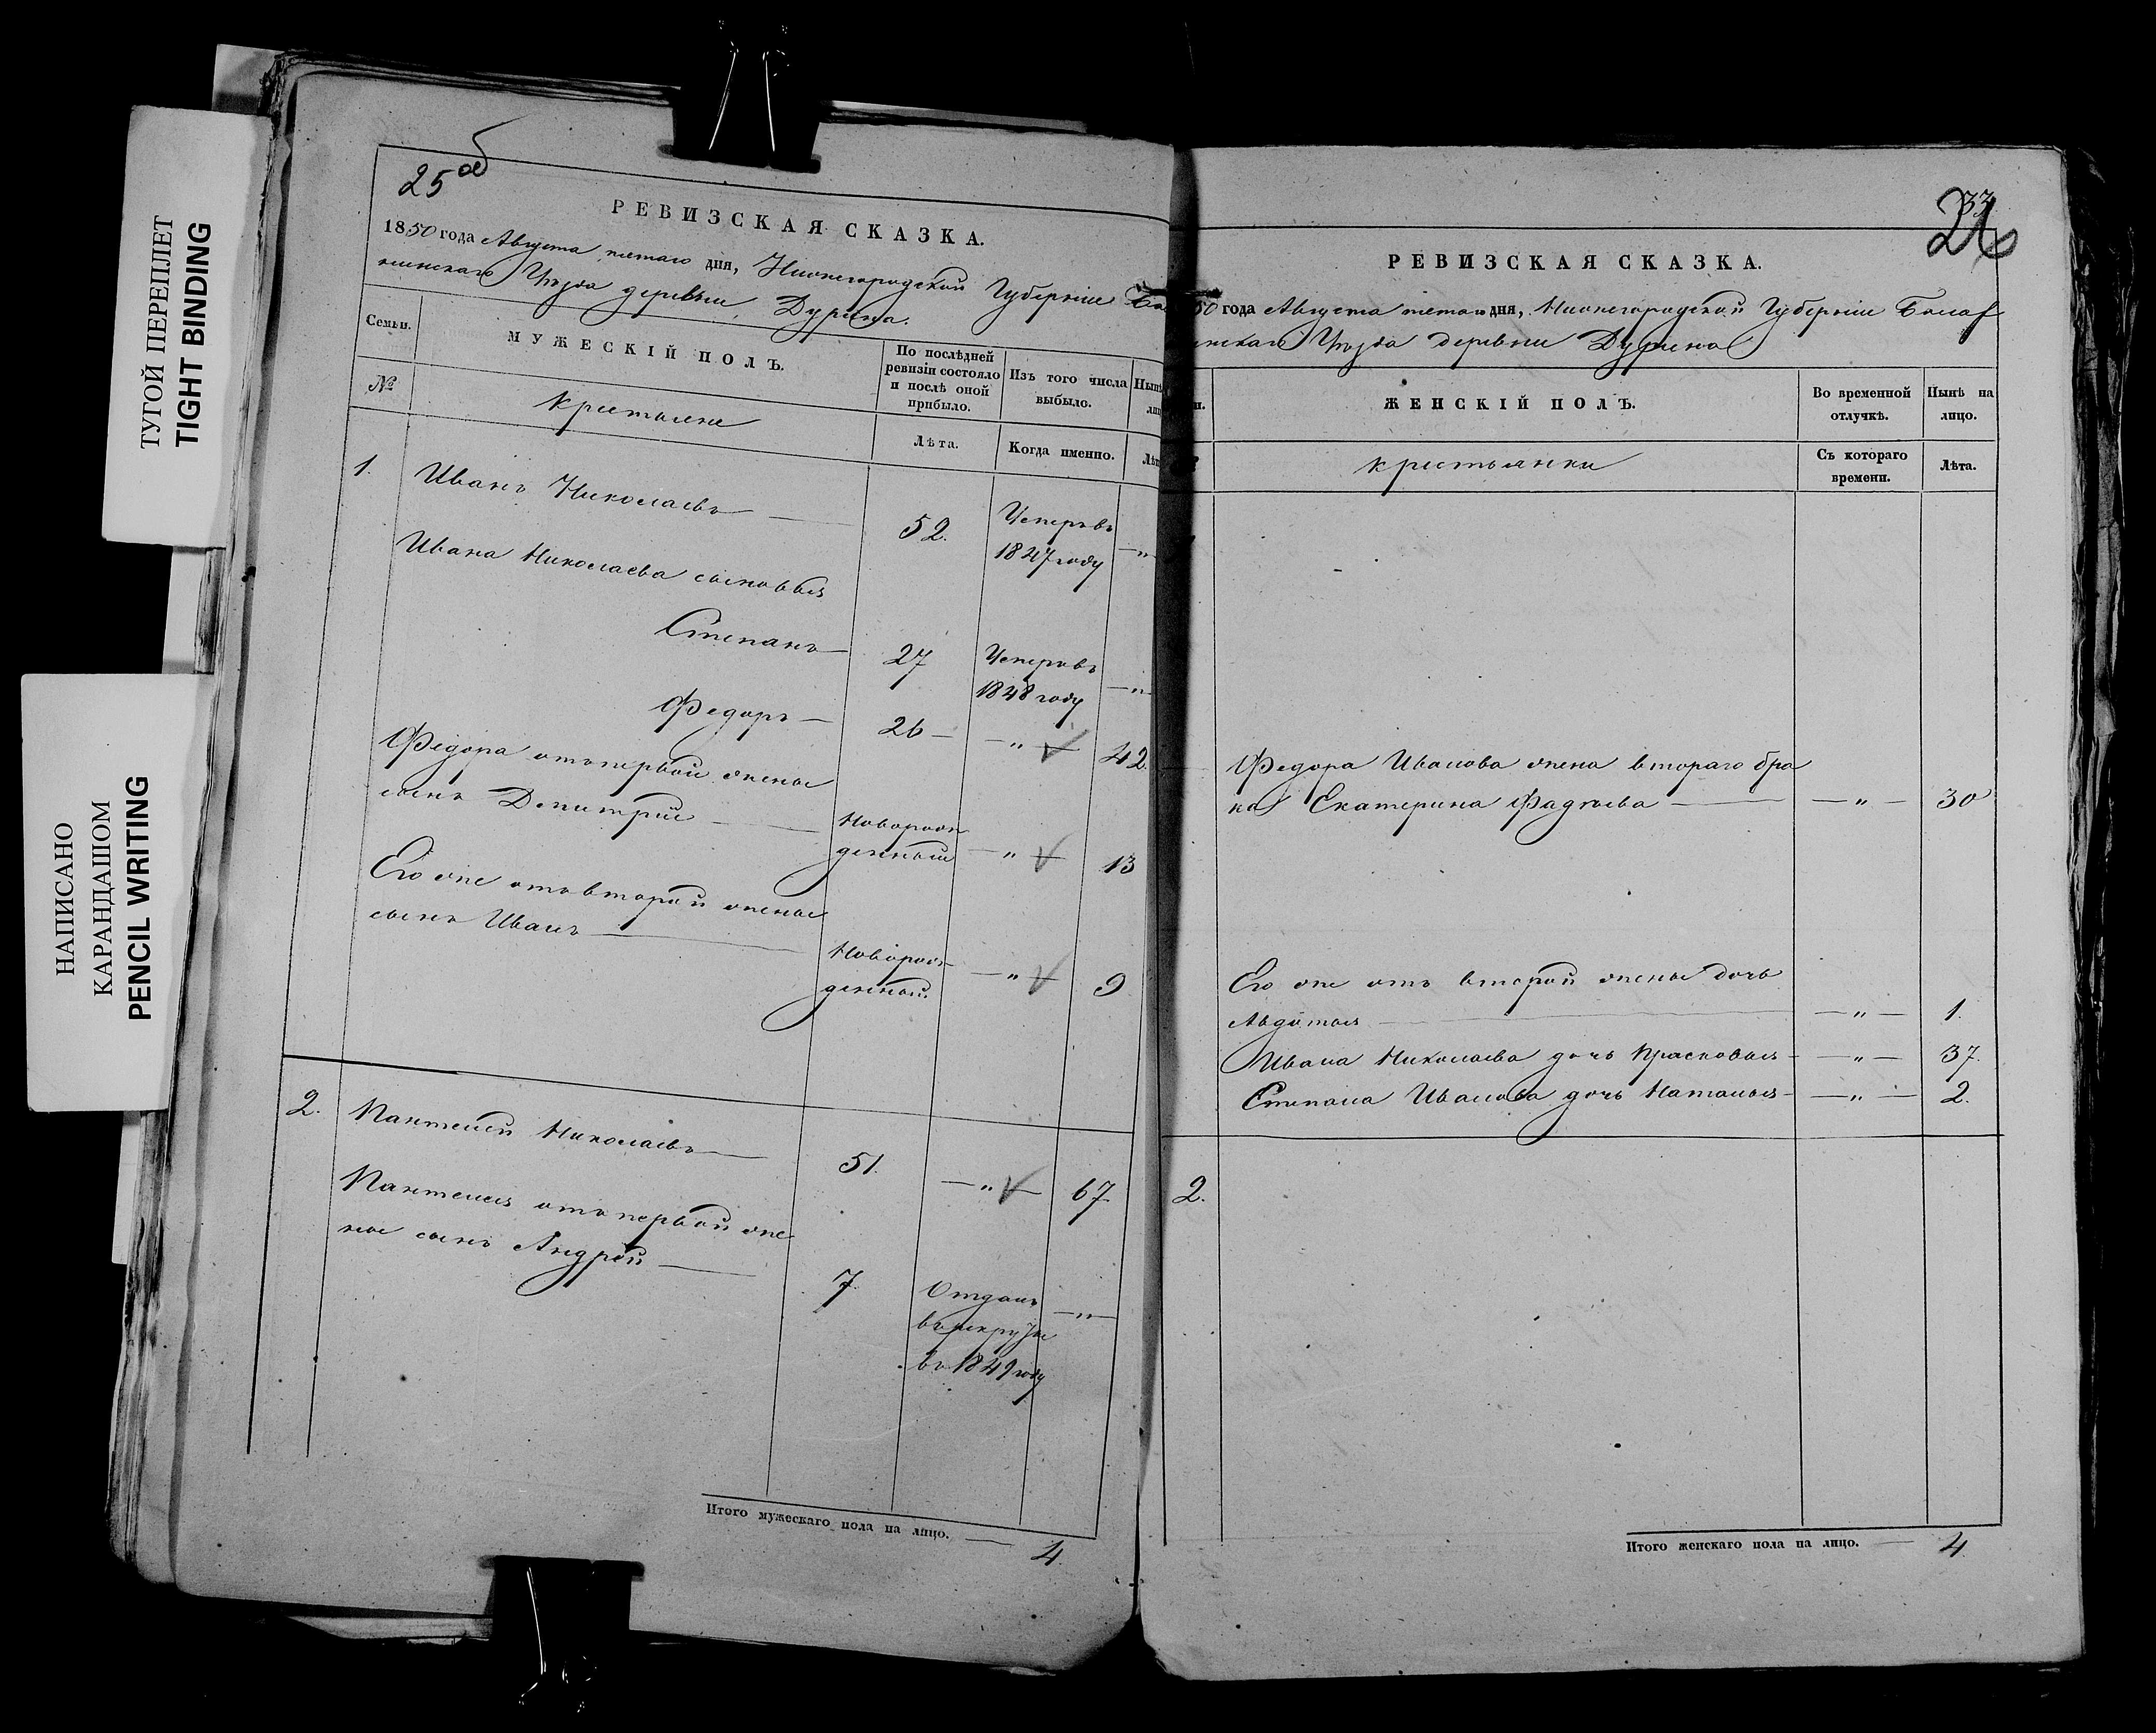 ТУГОЙ ПЕРЕПЛЕТ
TIGHT BINDING
НАПИСАНО
КАРАНДАШОМ
PENCIL WRITING
25 об
РЕВИЗСКАЯ СКАЗКА.
1850 года Августа пятаго дня, Нижегородской Губерніи Ба
нинскаго Уѣзда деревни Дурина.
Семьи.
МУЖЕСКІЙ ПОЛЪ.
По послѣдней
ревизіи состояло
и послѣ оной
прибыло.
Изъ того числа
выбыло.
Нынѣ
лиц
№
Крестьяне
Лѣта.
Когда именно.
Лѣт
1.
Иванъ Николаевъ
52.
Умеръ въ
1847 году
— „ —
Ивана Николаева сыновья
Степанъ —
27
Умеръ въ
1848 году
— „ —
Федоръ —
26 —
— „ —
42.
Федора отъ первой жены
сынъ Дмитрій
Новорож
денный
— „ —
13
Его же отъ второй жены
сынъ Иванъ
Новорож
денный
— „ —
9
2.
Пантелей Николаевъ
51.
— „ —
67.
Пантелея отъ первой же
ны сынъ Андрей
7.
Отданъ
въ рекруты
въ 1849 году
— „ —
Итого мужескаго пола на лицо.
4.
33
26
РЕВИЗСКАЯ СКАЗКА.
50 года Августа пятаго дня, Нижегородской Губерніи Балах
нскаго Уѣзда деревни Дурина
и.
ЖЕНСКІЙ ПОЛЪ.
Во временной
отлучкѣ.
Нынѣ на
лицо.
Крестьянки
Съ котораго
времени.
Лѣта.
Федора Иванова жена втораго бра
ка Екатерина Фадѣева — — „ — 30
Его же отъ второй жены дочь
Авдотья — — „ — 1.
Ивана Николаева дочь Прасковья — — „ — 37.
Степана Иванова дочь Наталья — — „ — 2.
2.
Итого женскаго пола на лицо. — 4.